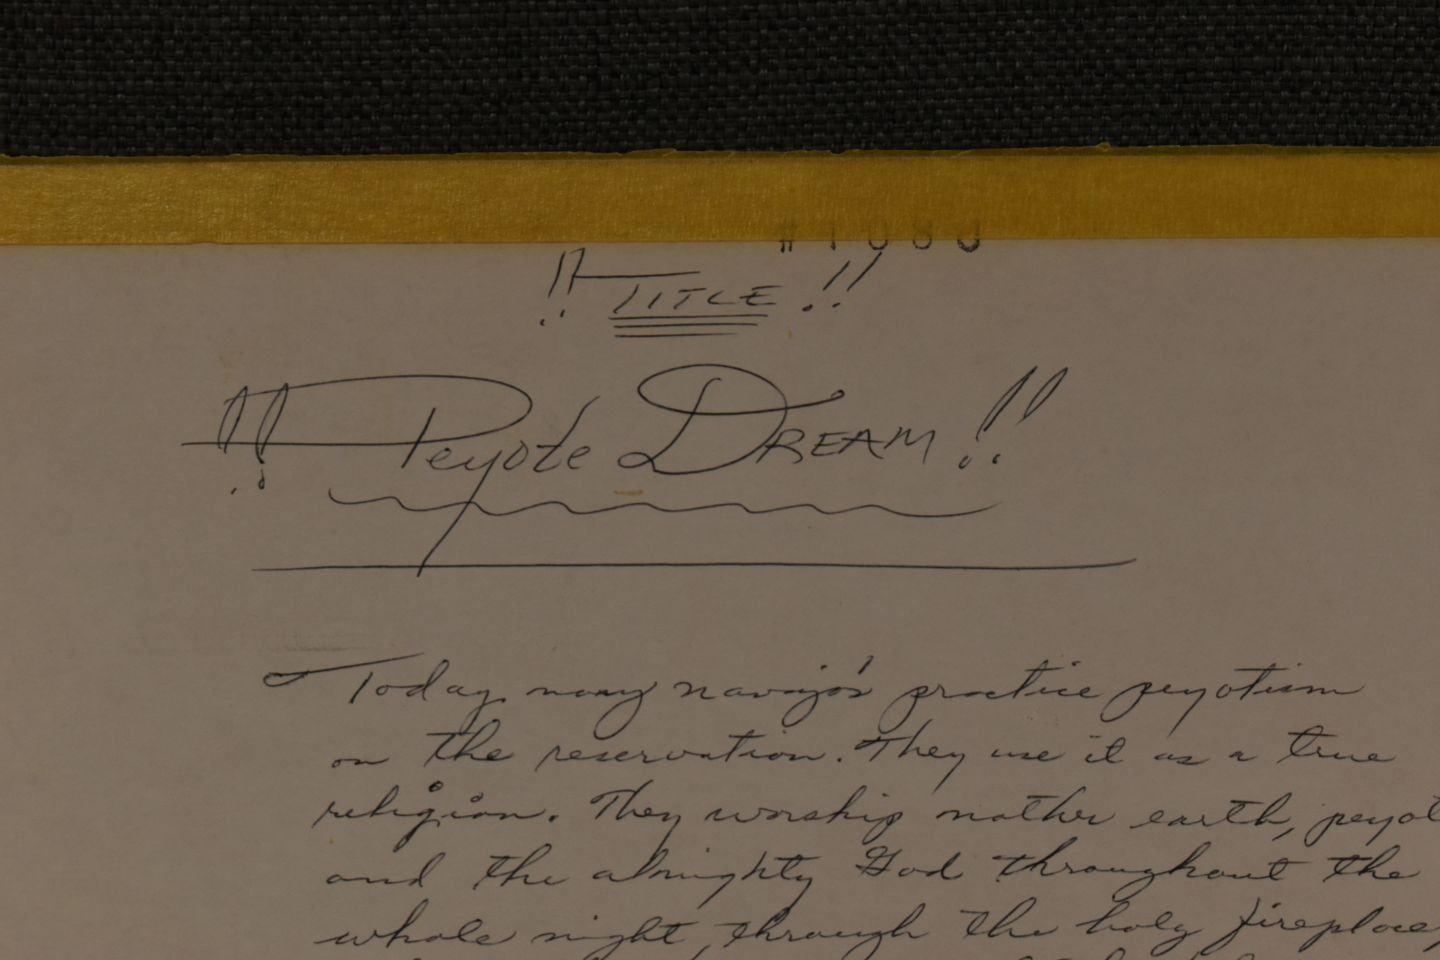 #1083
!! TITLE !!
!! Peyote DREAM !!
Today many navajo's practice peyotism
on the reservation. They use it as a true
religion. They worship mother earth, peyot
and the almighty God throughout the
whole night, through the holy fireplace,